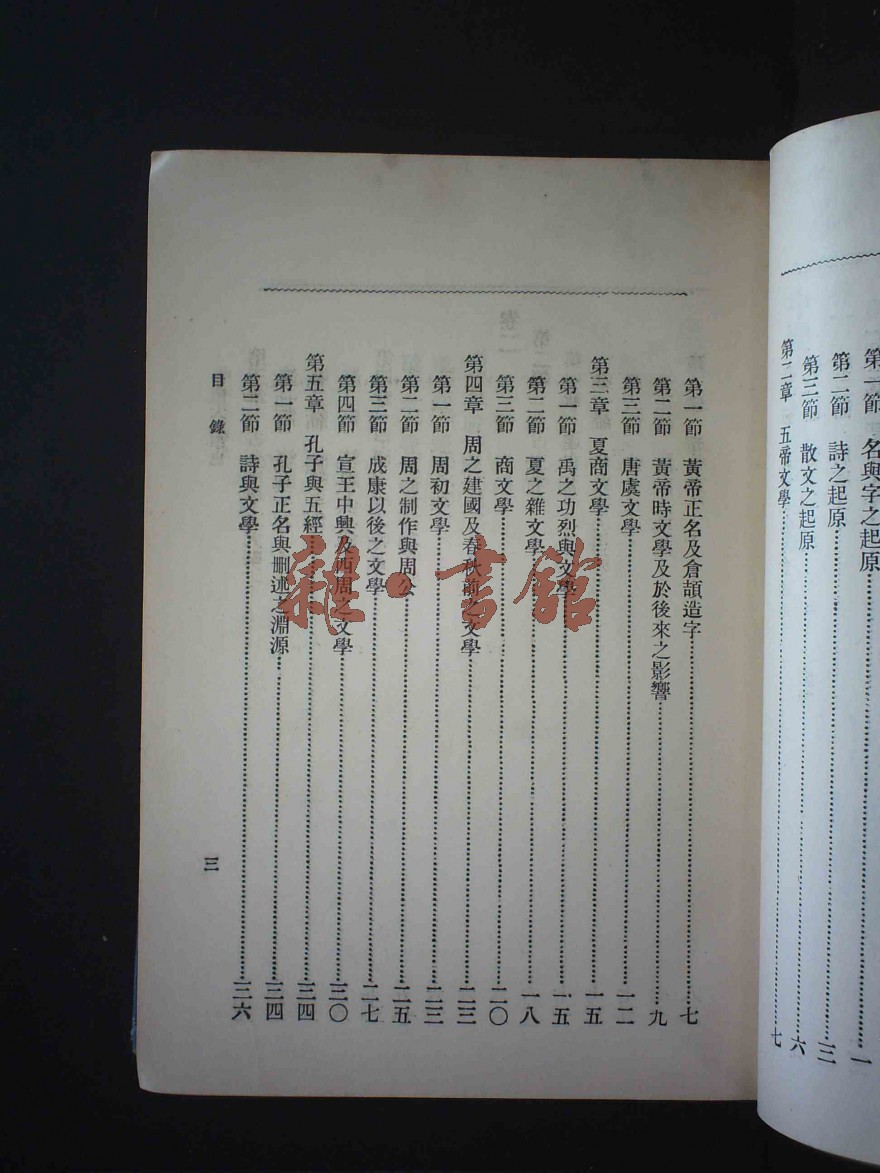 第一節 名與字之起原 一
第二節 詩之起原 三
第三節 散文之起原 六
第二章 五帝文學 七
第一節 黃帝正名及倉頡造字 七
第二節 黃帝時文學及於後來之影響 九
第三節 唐虞文學 一二
第三章 夏商文學 一五
第一節 禹之功烈與文學 一五
第二節 夏之雜文學 一八
第三節 商文學 二〇
第四章 周之建國及春秋前之文學 二三
第一節 周初文學 二三
第二節 周之制作與周公 二五
第三節 成康以後之文學 二七
第四節 宣王中興及西周之文學 三〇
第五章 孔子與五經 三四
第一節 孔子正名與刪述之淵源 三四
第二節 詩與文學 三六
目錄 三
雜·書館